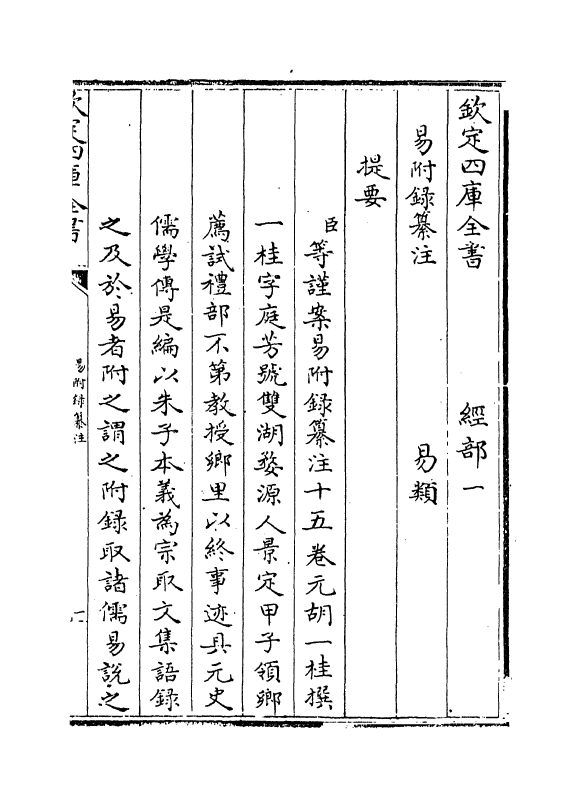 欽定四庫全書　經部一
易附録纂注　易類
提要
臣等謹案易附録纂注十五卷元胡一桂撰
一桂字庭芳號雙湖婺源人景定甲子領鄉
薦試禮部不第教授鄉里以終事迹具元史
儒學傳是編以朱子本義為宗取文集語録
之及於易者附之謂之附録取諸儒易說之
欽定四庫全書
易附録纂注
一